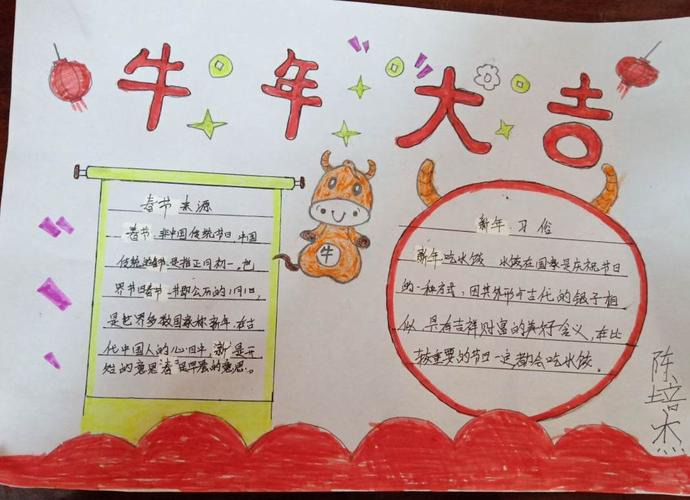 牛年大吉
春节来源
春节,非中国传统节日,中国
传统春节是指正月初一。把
界节日春节一节即公历的1月1日,
是世界多数国家称新年,在古
代中国人的心目中,新是开
始的意思春是早晨的意思。
牛
新年习俗
新年吃水饺 水饺在国家是庆祝节日
的一种方式,因其外形与古代的银子相
似 具有吉祥财富的美好含义,在比
较重要的节日一定都会吃水饺
陈培杰